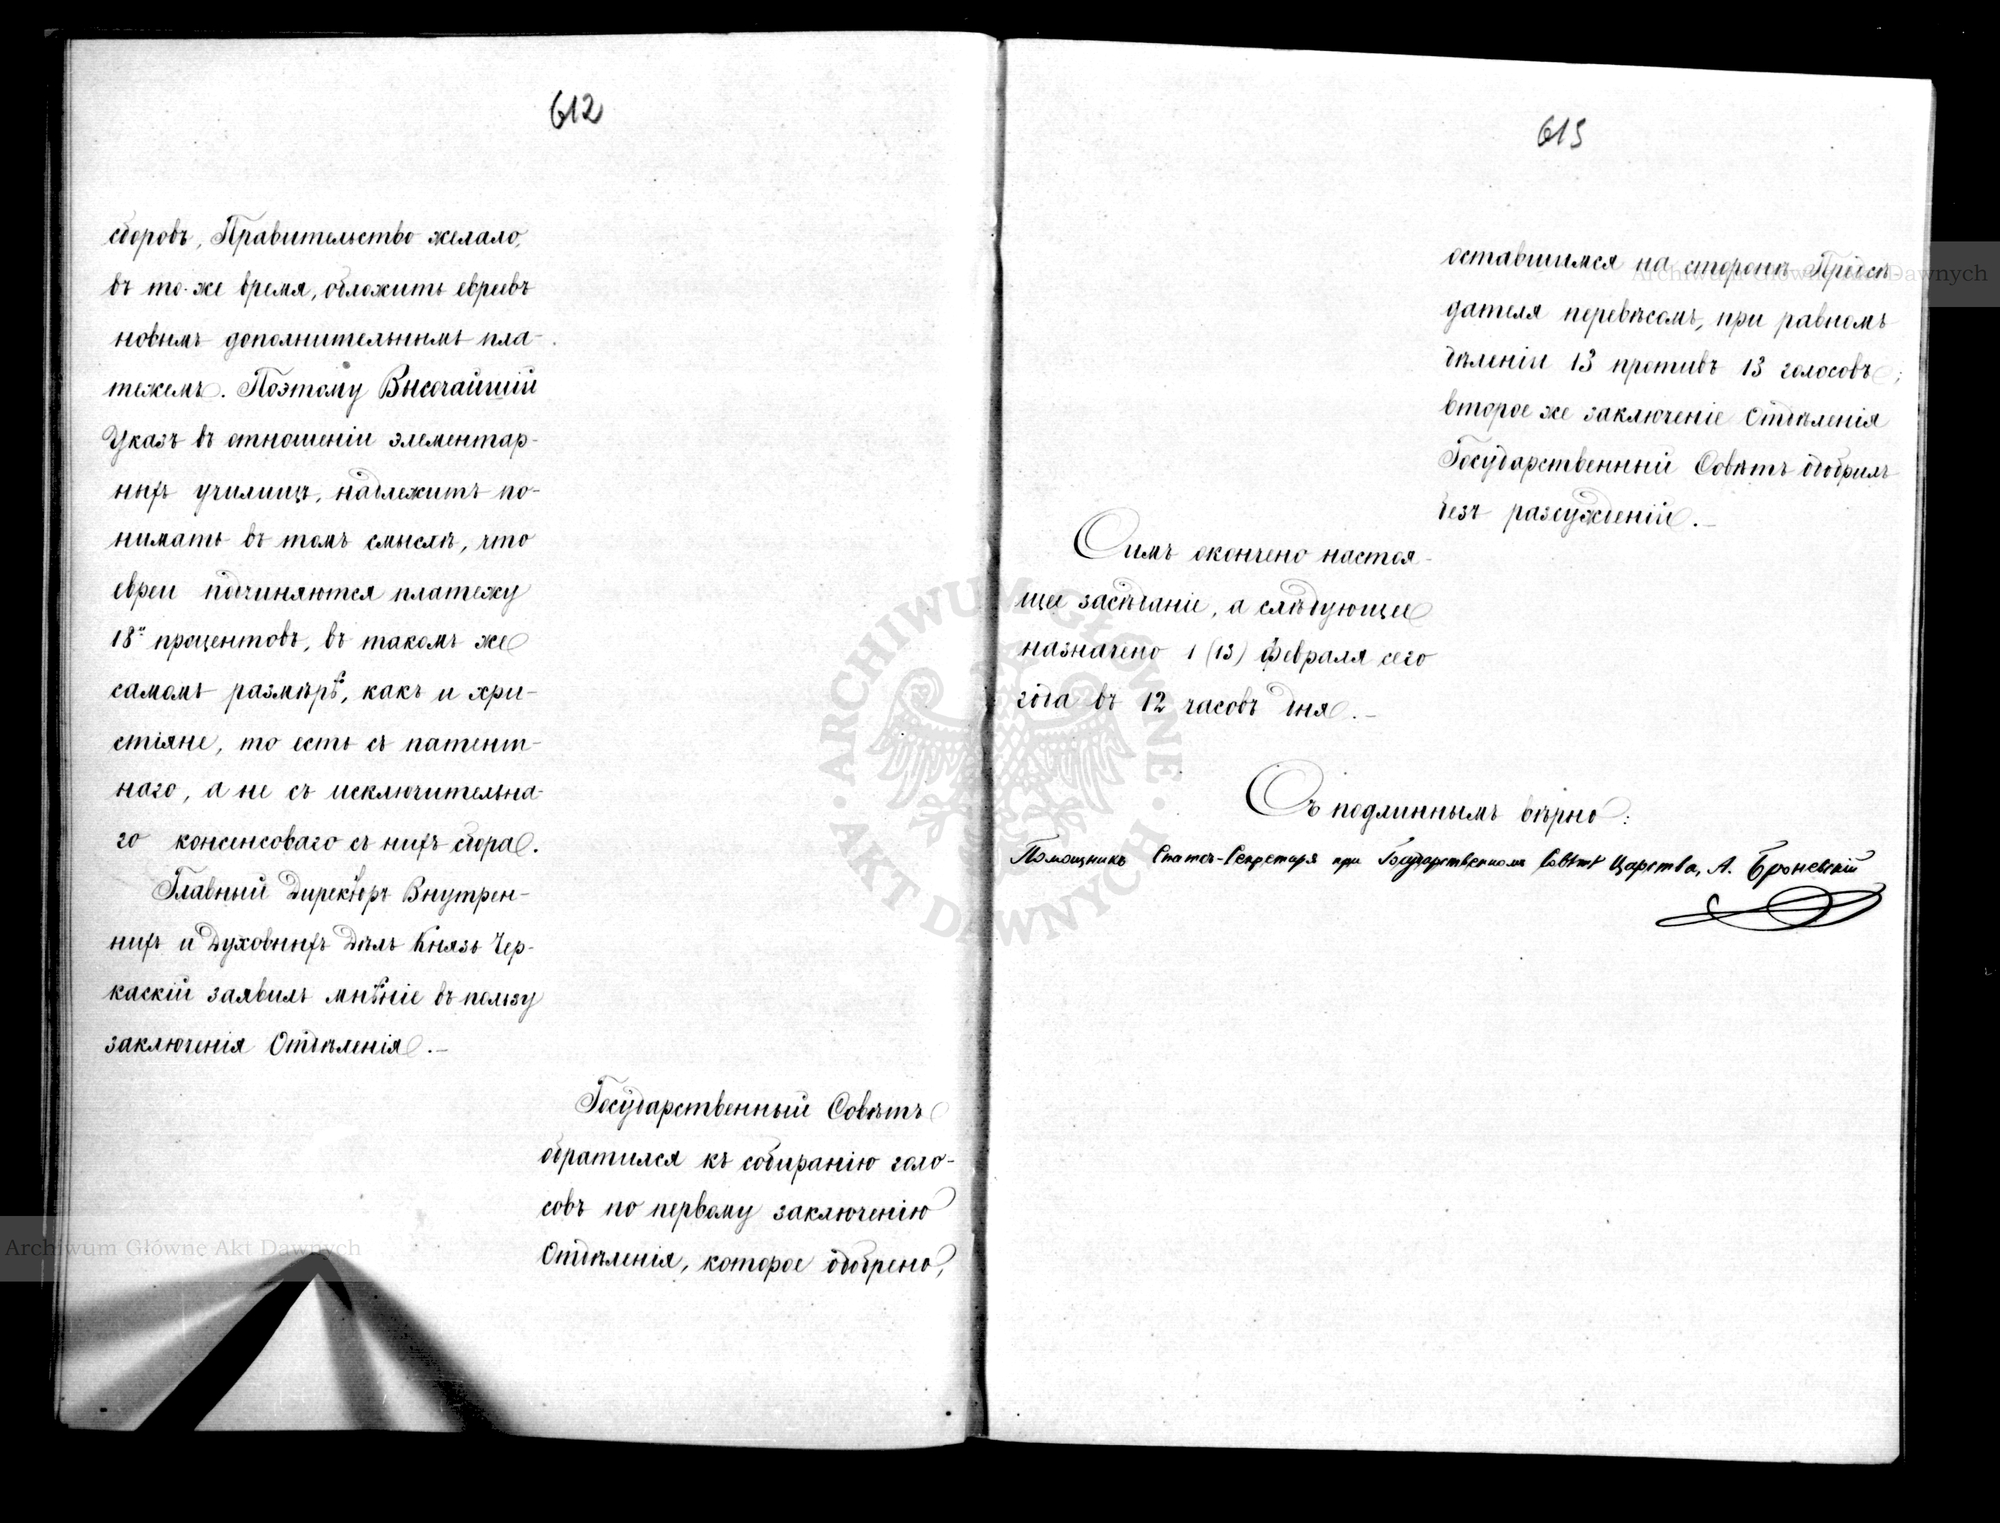 612
сборовъ, Правительство желало,
въ то-же время, обложить евреевъ
новымъ дополнительнымъ пла-
тежемъ. Поэтому Высочайшій
Указъ въ отношеніи элементар-
ныхъ училищъ, надлежитъ по-
нимать въ томъ смыслѣ, что
евреи подчиняются платежу
18и процентовъ, въ такомъ же
самомъ размѣрѣ, какъ и хри-
стіяне, то есть съ патент-
наго, а не съ исключительна-
го консенсоваго съ нихъ сбора.
Главный Директоръ Внутрен-
нихъ и Духовныхъ Дѣлъ Князь Чер-
каскій заявилъ мнѣніе въ пользу
заключенія Отдѣленія.—
Государственный Совѣтъ
обратился къ собиранію голо-
совъ по первому заключенію
Отдѣленія, которое одобрено,
613
оставшимся на сторонѣ Предсѣ
дателя перевѣсомъ, при равномъ
дѣленіи 13 противъ 13 голосовъ;
второе же заключеніе Отдѣленія
Государственный Совѣтъ одобрилъ
безъ разсужденій.—
Симъ окончено настоя-
щее засѣданіе, а слѣдующее
назначено 1 (13) февраля сего
года въ 12 часовъ дня.—
Съ подлиннымъ вѣрно:
Помощникъ Статсъ-Секретаря при Государственномъ Совѣтѣ Царства, А. Броневскій
ARCHIWUM GŁÓWNE · AKT DAWNYCH ·
Archiwum Główne Akt Dawnych
Archiwum Główne Akt Dawnych